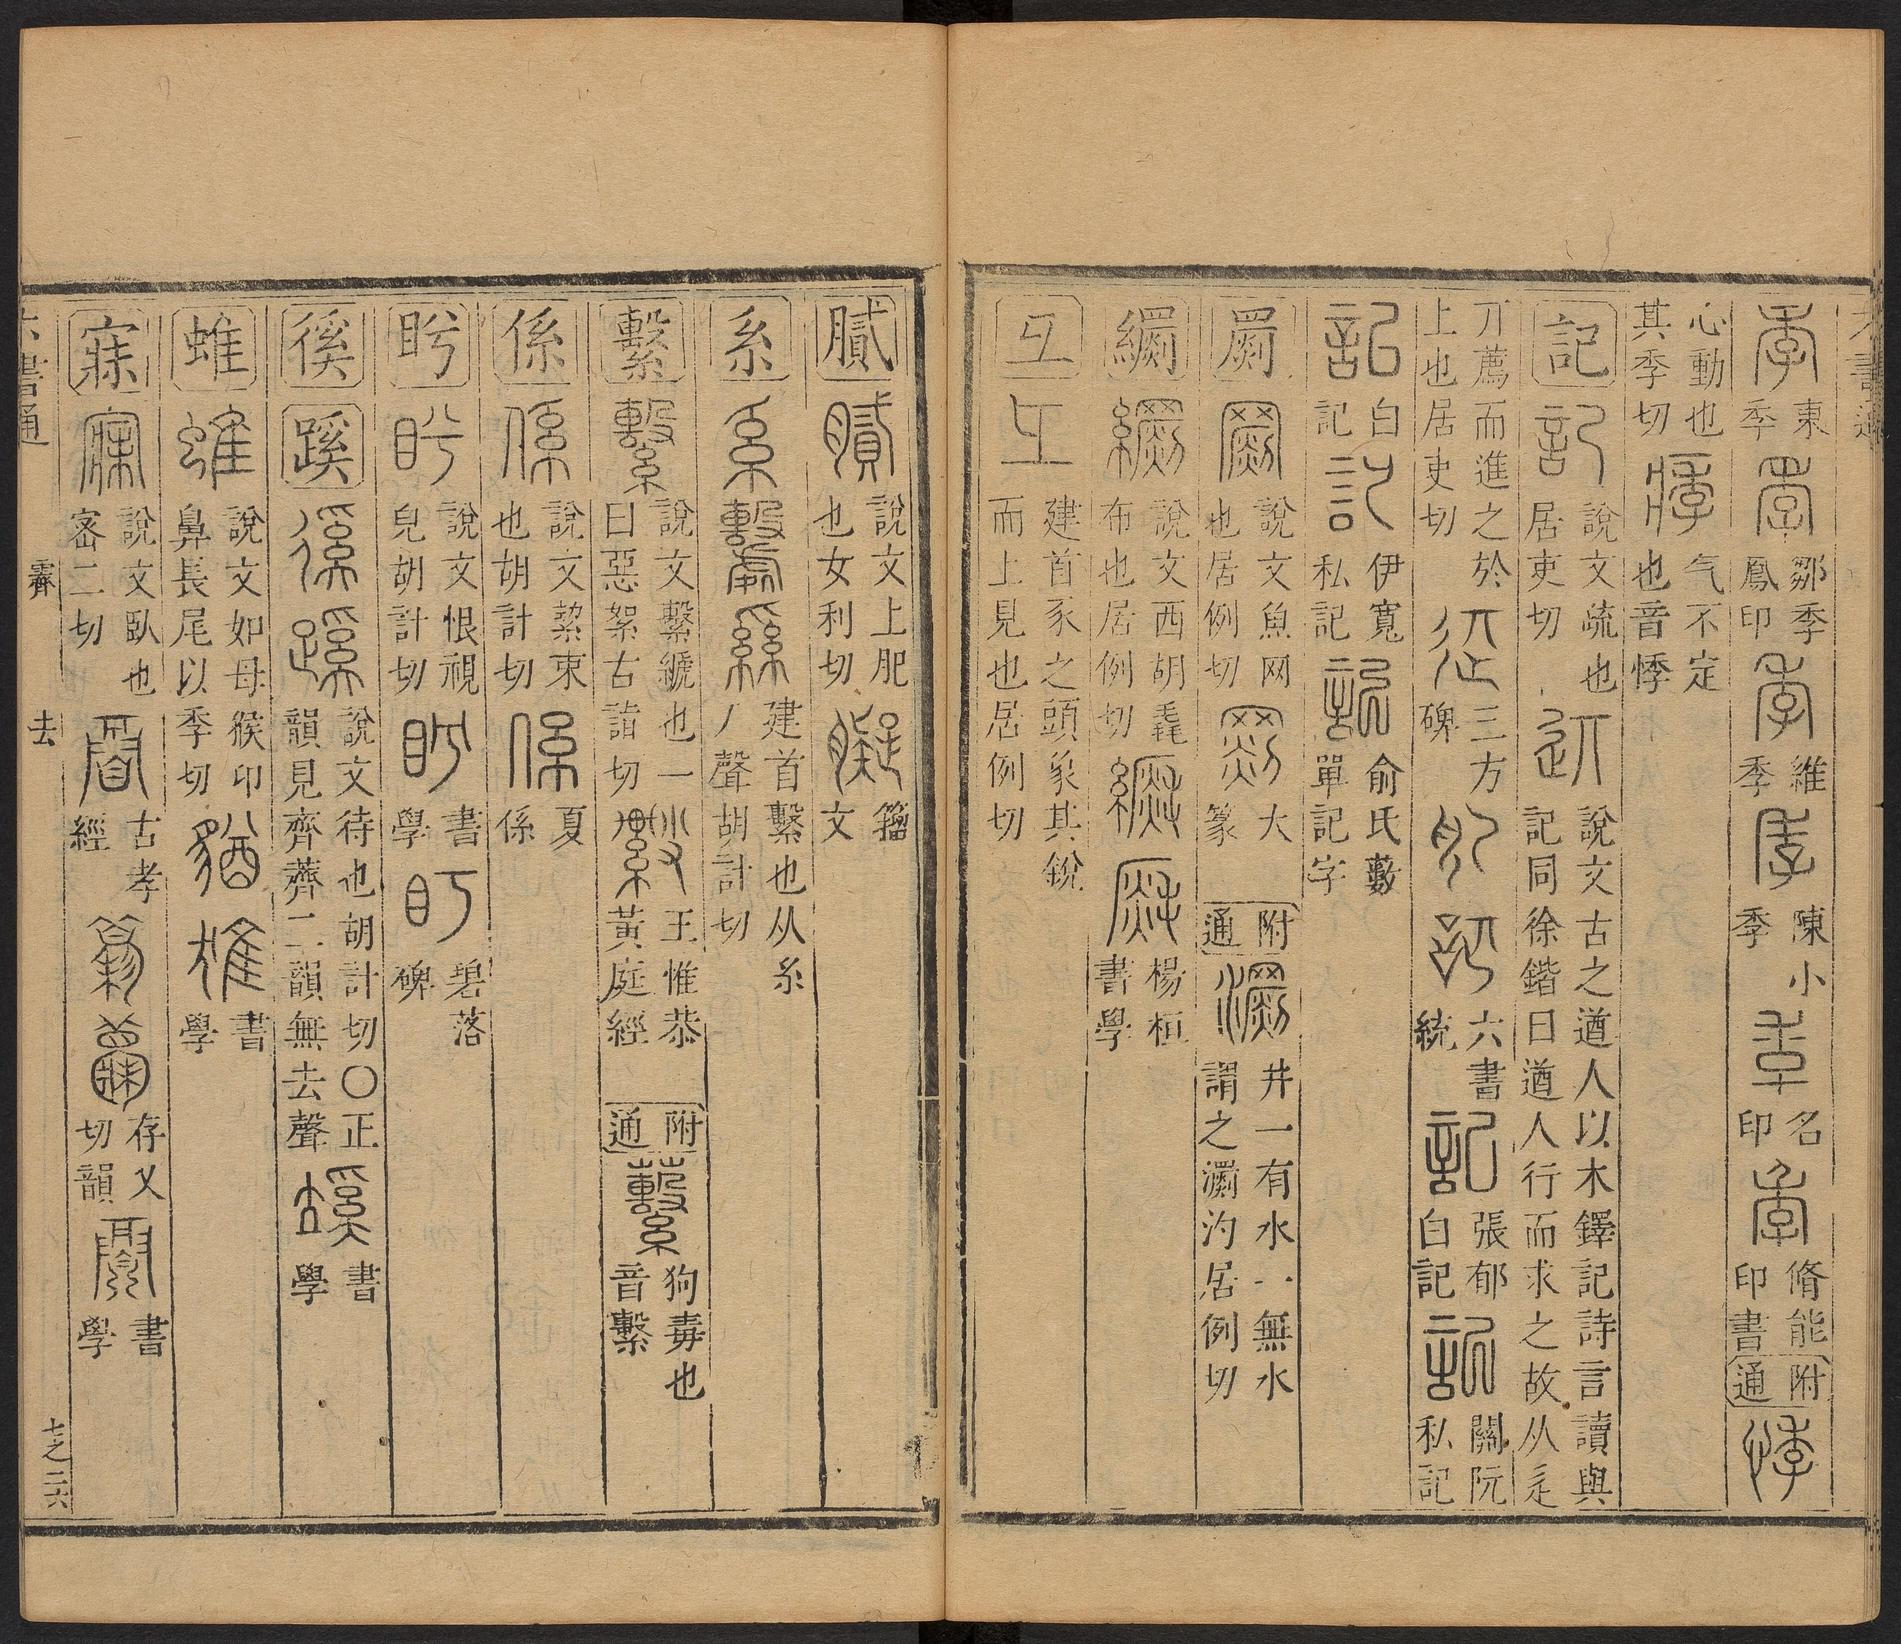 六書通
季 東季 季 鄒季鳳印 季 維季 季 陳小季 季 名印 季 脩能印書 附通 悸
心動也其季切 痵 气不定也音悸
記 記 說文疏也居吏切 䢋 說文古之遒人以木鐸記詩言讀與記同徐鍇曰遒人行而求之故从辵
丌薦而進之於上也居吏切 三方碑 六書統 記 張郁白記 記 關阮私記
記 白記 記 伊寬私記 記 俞氏藪單記字
罽 罽 說文魚网也居例切 大篆 附通 瀱 井一有水一無水謂之瀱汋居例切
繝 說文西胡毳布也居例切 楊桓書學
彑 彑 建首豕之頭象其銳而上見也居例切
膩 膩 說文上肥也女利切 籀文
系 系 建首繫也从糸丿聲胡計切
繫 繫 說文繫𦃇也一曰惡絮古詣切 王惟恭黃庭經 附通 蘻 狗毒也音繫
係 係 說文絜束也胡計切 係 夏係
盻 盻 說文恨視皃胡計切 書學 碧落碑
徯 蹊 徯 蹊 說文待也胡計切〇正韻見齊薺二韻無去聲 書學
蜼 蜼 說文如母猴卬鼻長尾以季切 書學
寐 寐 說文臥也密二切 古孝經 存乂切韻 書學
六書通 霽 去 七之二六